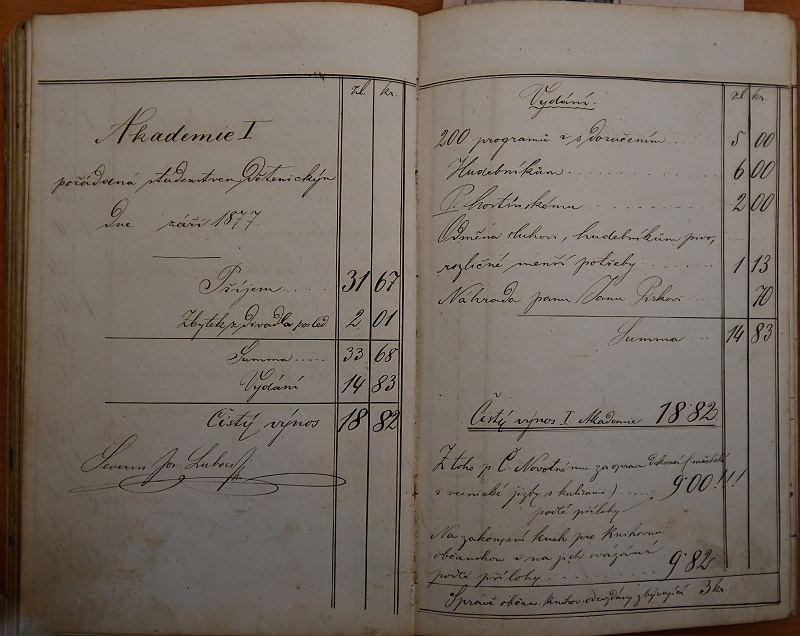 zl. kr.
Akademie I
pořádaná studenstvem Dětenickým
dne září 1877.
Příjem..... 31 67
Zbytek z divadla posled 2 01
Summa..... 33 68
Vydání 14 83
Čistý výnos 18 82
Severin Jos.
zl. kr.
Vydání.
200 programů i s doručením.... 5 00
Hudebníkům............ 6 00
P. Chortinskému........ 2 00
Odměna sluhovi, hudebníkům pivo,
rozličné menší potřeby....... 1 13
Náhrada panu Janu 70
Summa..... 14 83
Čistý výnos I Akademie 18 82
Z toho p. Č. Novotnému za opravu dekorací (městské
i vesnické jizby s kulisami)..... 9 00!!!
podlé přílohy
Na zakoupení knih pro Knihovnu
občanskou i na jich svázání
podlé přílohy........... 9 82
Správě občan. knihov. odevzdány zbývající 3 kr